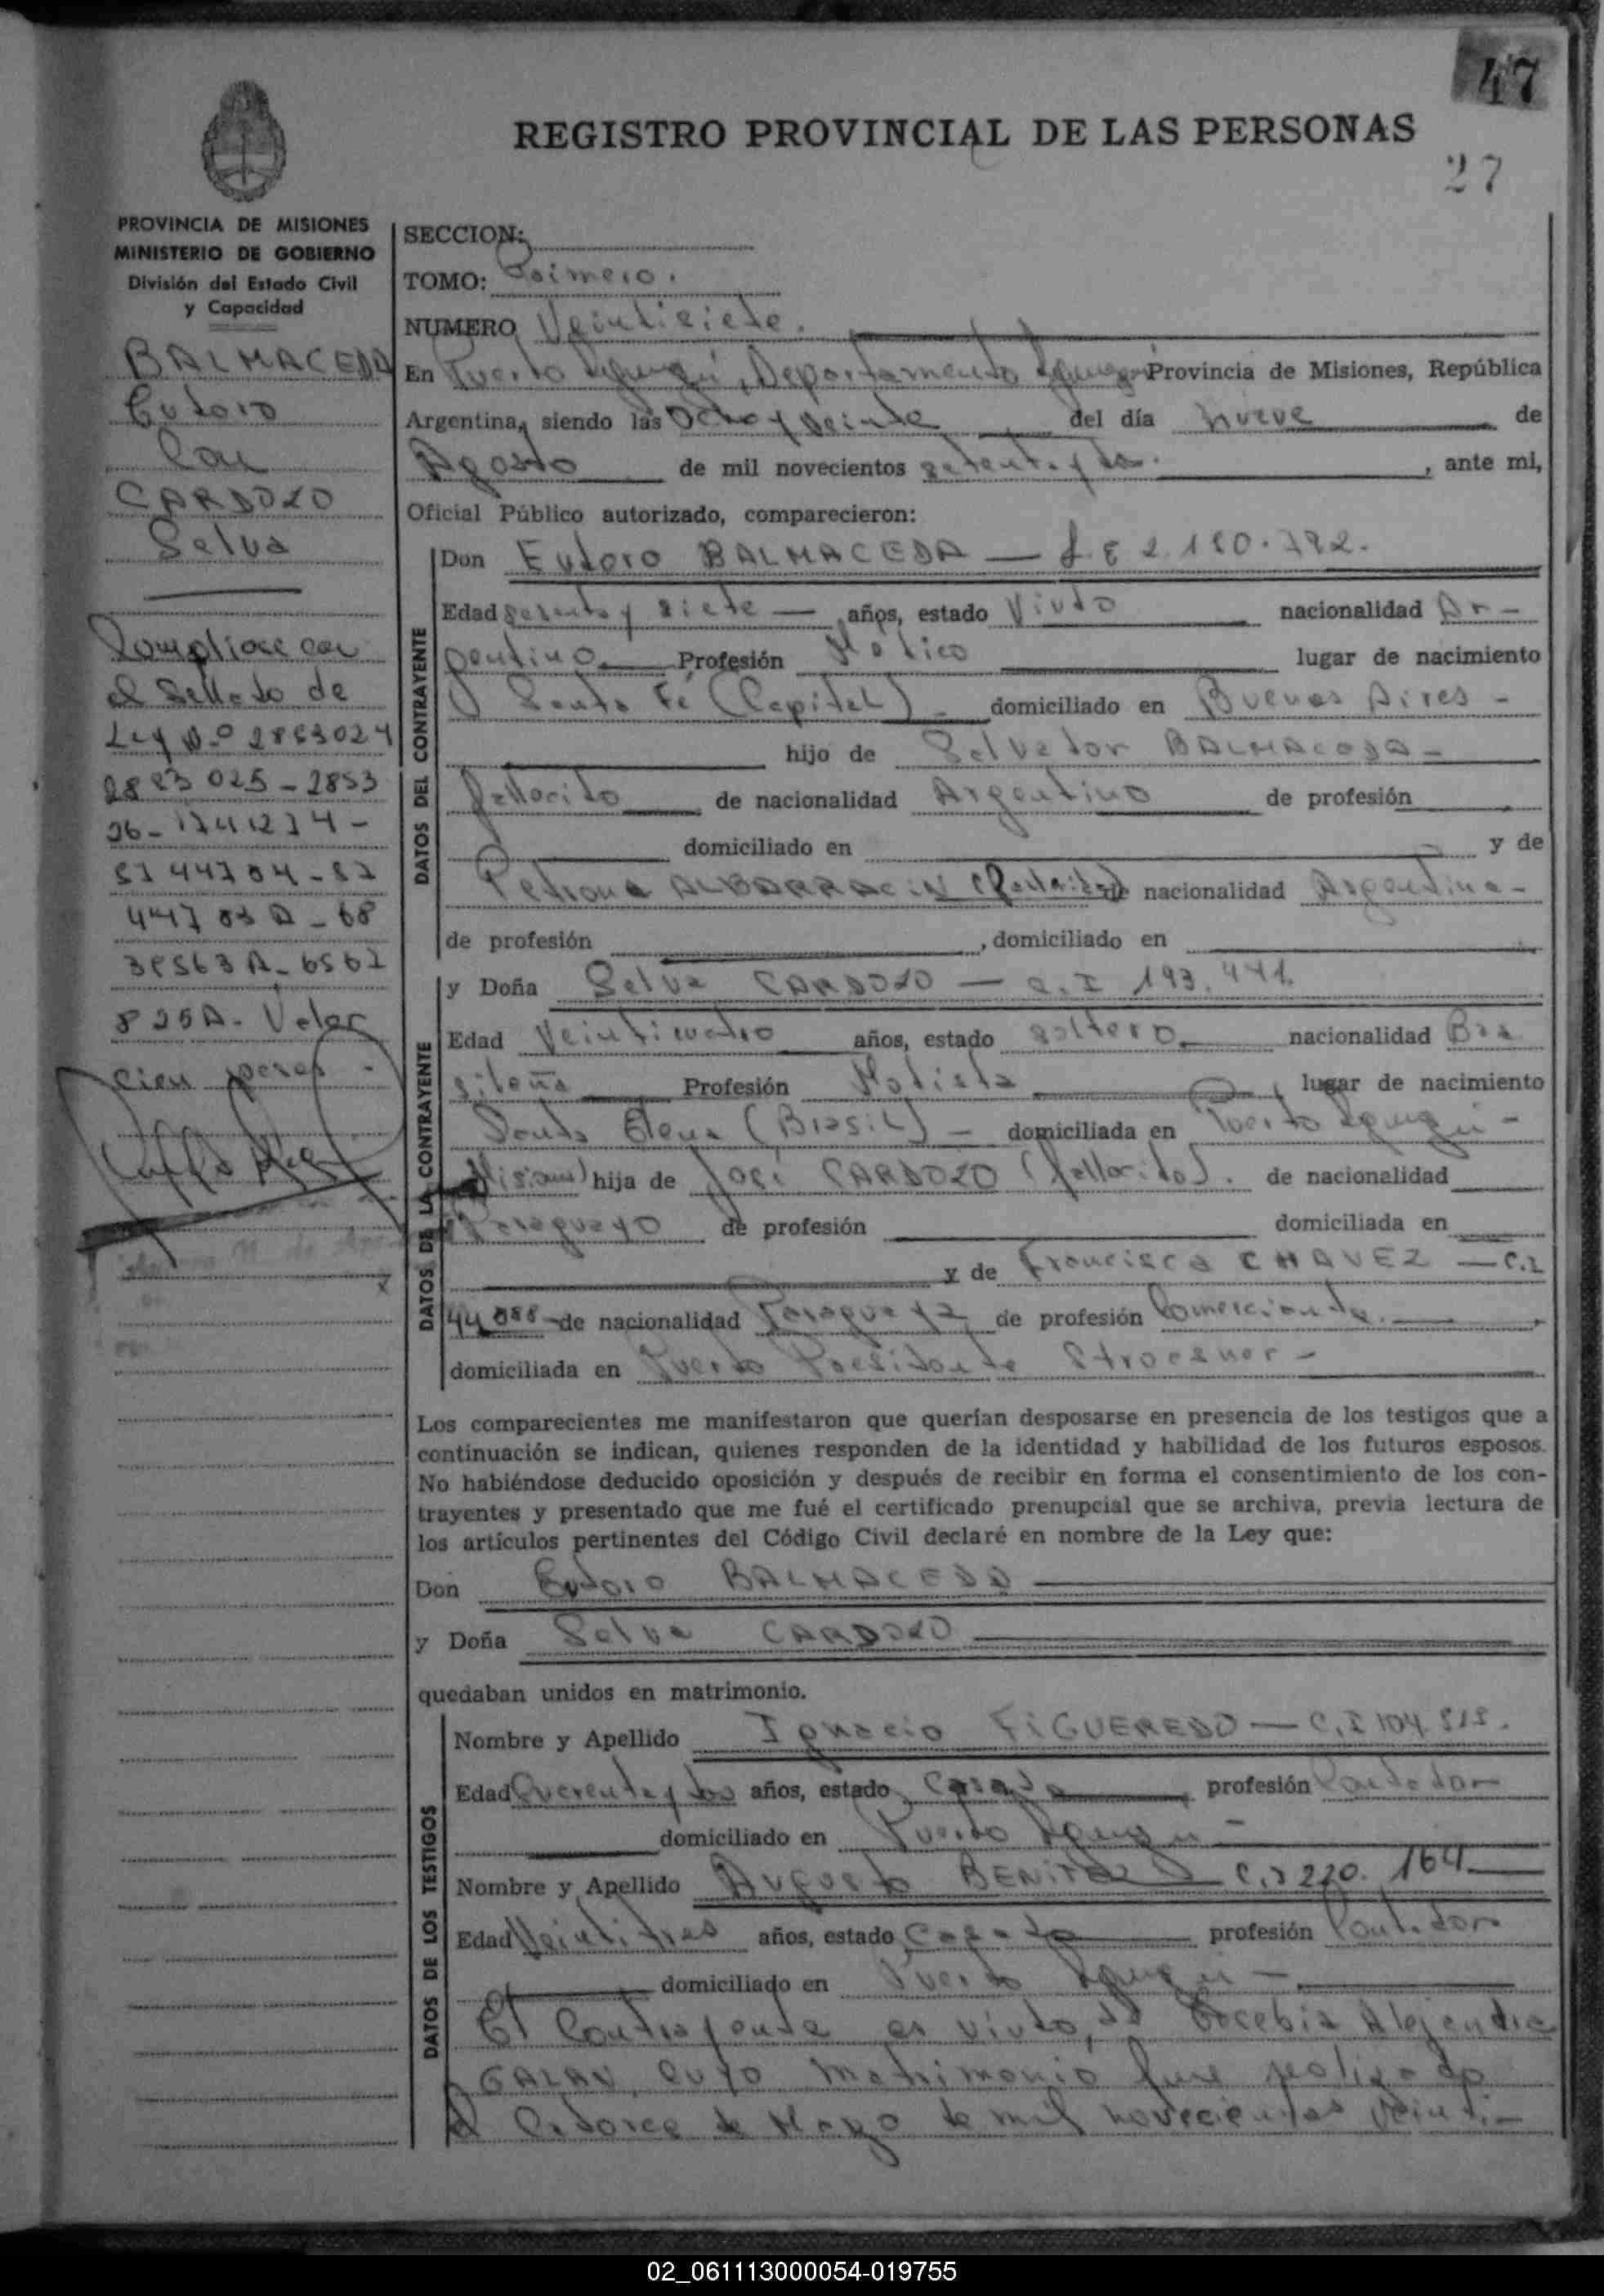 47
REGISTRO PROVINCIAL DE LAS PERSONAS
27
PROVINCIA DE MISIONES
MINISTERIO DE GOBIERNO
División del Estado Civil
y Capacidad
BALMACEDA
Eudoro
Con
CARDOZO
Selva
Compliose con
el Sellado de
Ley N.º 2853024
2853 025 - 2853
26 - 1741274 -
5744704 - 57
44703 A - 68
38563 A - 6567
825 A - Valor
cien pesos -
SECCION:
TOMO: Primero.
NUMERO Veintisiete.
En Puerto Iguazú, Departamento Iguazú Provincia de Misiones, República
Argentina, siendo las Ocho y veinte del día nueve de
Agosto de mil novecientos setenta y dos. , ante mi,
Oficial Público autorizado, comparecieron:
DATOS DEL CONTRAYENTE
Don Eudoro BALMACEDA — L.E 2.180.792.
Edad sesenta y siete — años, estado Viudo nacionalidad Ar-
gentino Profesión Médico lugar de nacimiento
Santa Fé (Capital) - domiciliado en Buenos Aires -
hijo de Salvador BALMACEDA -
fallecido de nacionalidad Argentino de profesión
domiciliado en y de
Petrona ALBARRACIN (fallecida) de nacionalidad Argentina -
de profesión , domiciliado en
DATOS DE LA CONTRAYENTE
y Doña Selva CARDOZO — C.I 193.441.
Edad Veinticuatro años, estado soltera nacionalidad Bra
sileña Profesión Modista lugar de nacimiento
Santa Elena (Brasil) - domiciliada en Puerto Iguazú -
Misiones) hija de José CARDOZO (fallecido). de nacionalidad
Paraguayo de profesión domiciliada en
y de Francisca CHAVEZ — C.I
44 088 - de nacionalidad Paraguaya de profesión Comerciante.
domiciliada en Puerto Presidente Stroesner -
Los comparecientes me manifestaron que querían desposarse en presencia de los testigos que a
continuación se indican, quienes responden de la identidad y habilidad de los futuros esposos.
No habiéndose deducido oposición y después de recibir en forma el consentimiento de los con-
trayentes y presentado que me fué el certificado prenupcial que se archiva, previa lectura de
los artículos pertinentes del Código Civil declaré en nombre de la Ley que:
Don Eudoro BALMACEDA
y Doña Selva CARDOZO
quedaban unidos en matrimonio.
DATOS DE LOS TESTIGOS
Nombre y Apellido Ignacio FIGUEREDO — C.I 104.515.
Edad Cuarenta y dos años, estado casado profesión Contador
domiciliado en Puerto Iguazú -
Nombre y Apellido Augusto BENITEZ C.I 220.164
Edad Veintitres años, estado Casado profesión Contador
domiciliado en Puerto Iguazú -
El Contrayente es viudo, de Eucebia Alejandra
GALAN, cuyo matrimonio fuse realizado
el Catorce de Mayo de mil novecientos veinti-
02_061113000054-019755